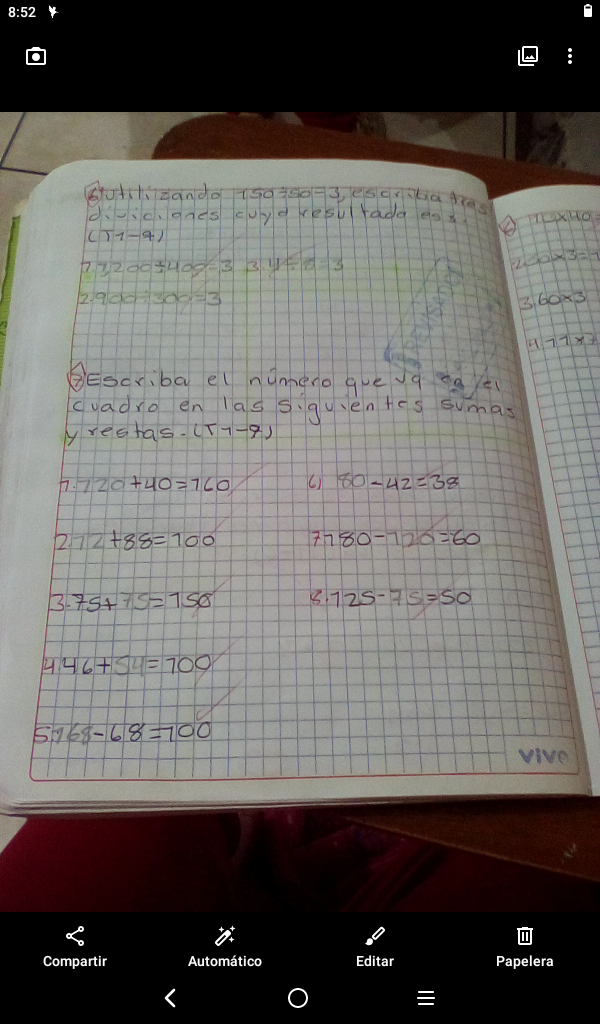 8:52
6) Utilizando 150÷50=3, escriba tres
diviciones cuyo resultado es 3.
(T1-9)
1.1,200÷400=3 3.
2.900÷300=3
7) Escriba el número que va en el
cuadro en las siguientes sumas
y restas. (T1-9)
1.120+40=160
6) 80-42=38
2.12+88=100
7.180-120=60
3.75+75=150
8.125-75=50
4.46+54=100
5.168-68=100
vivo
200×3=
3.60×3
Compartir
Automático
Editar
Papelera